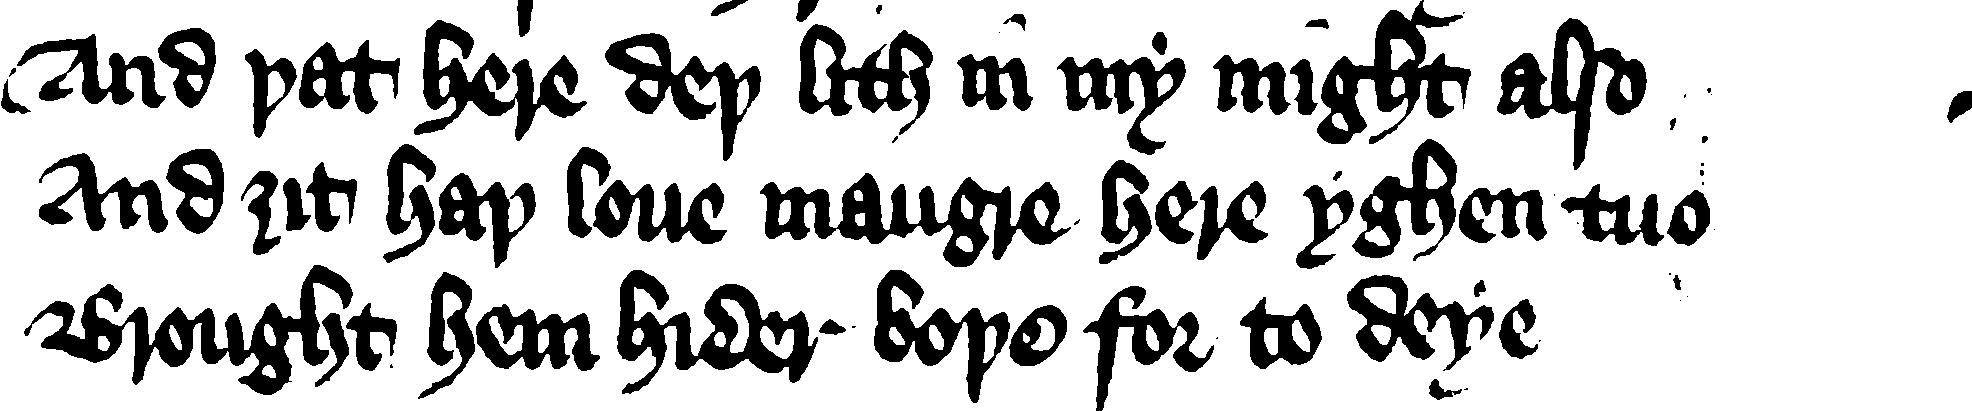 And þat here deþ lith in my might also
And ȝit haþ loue maugre here yghen tuo
Wrought hem hider boþe for to deye